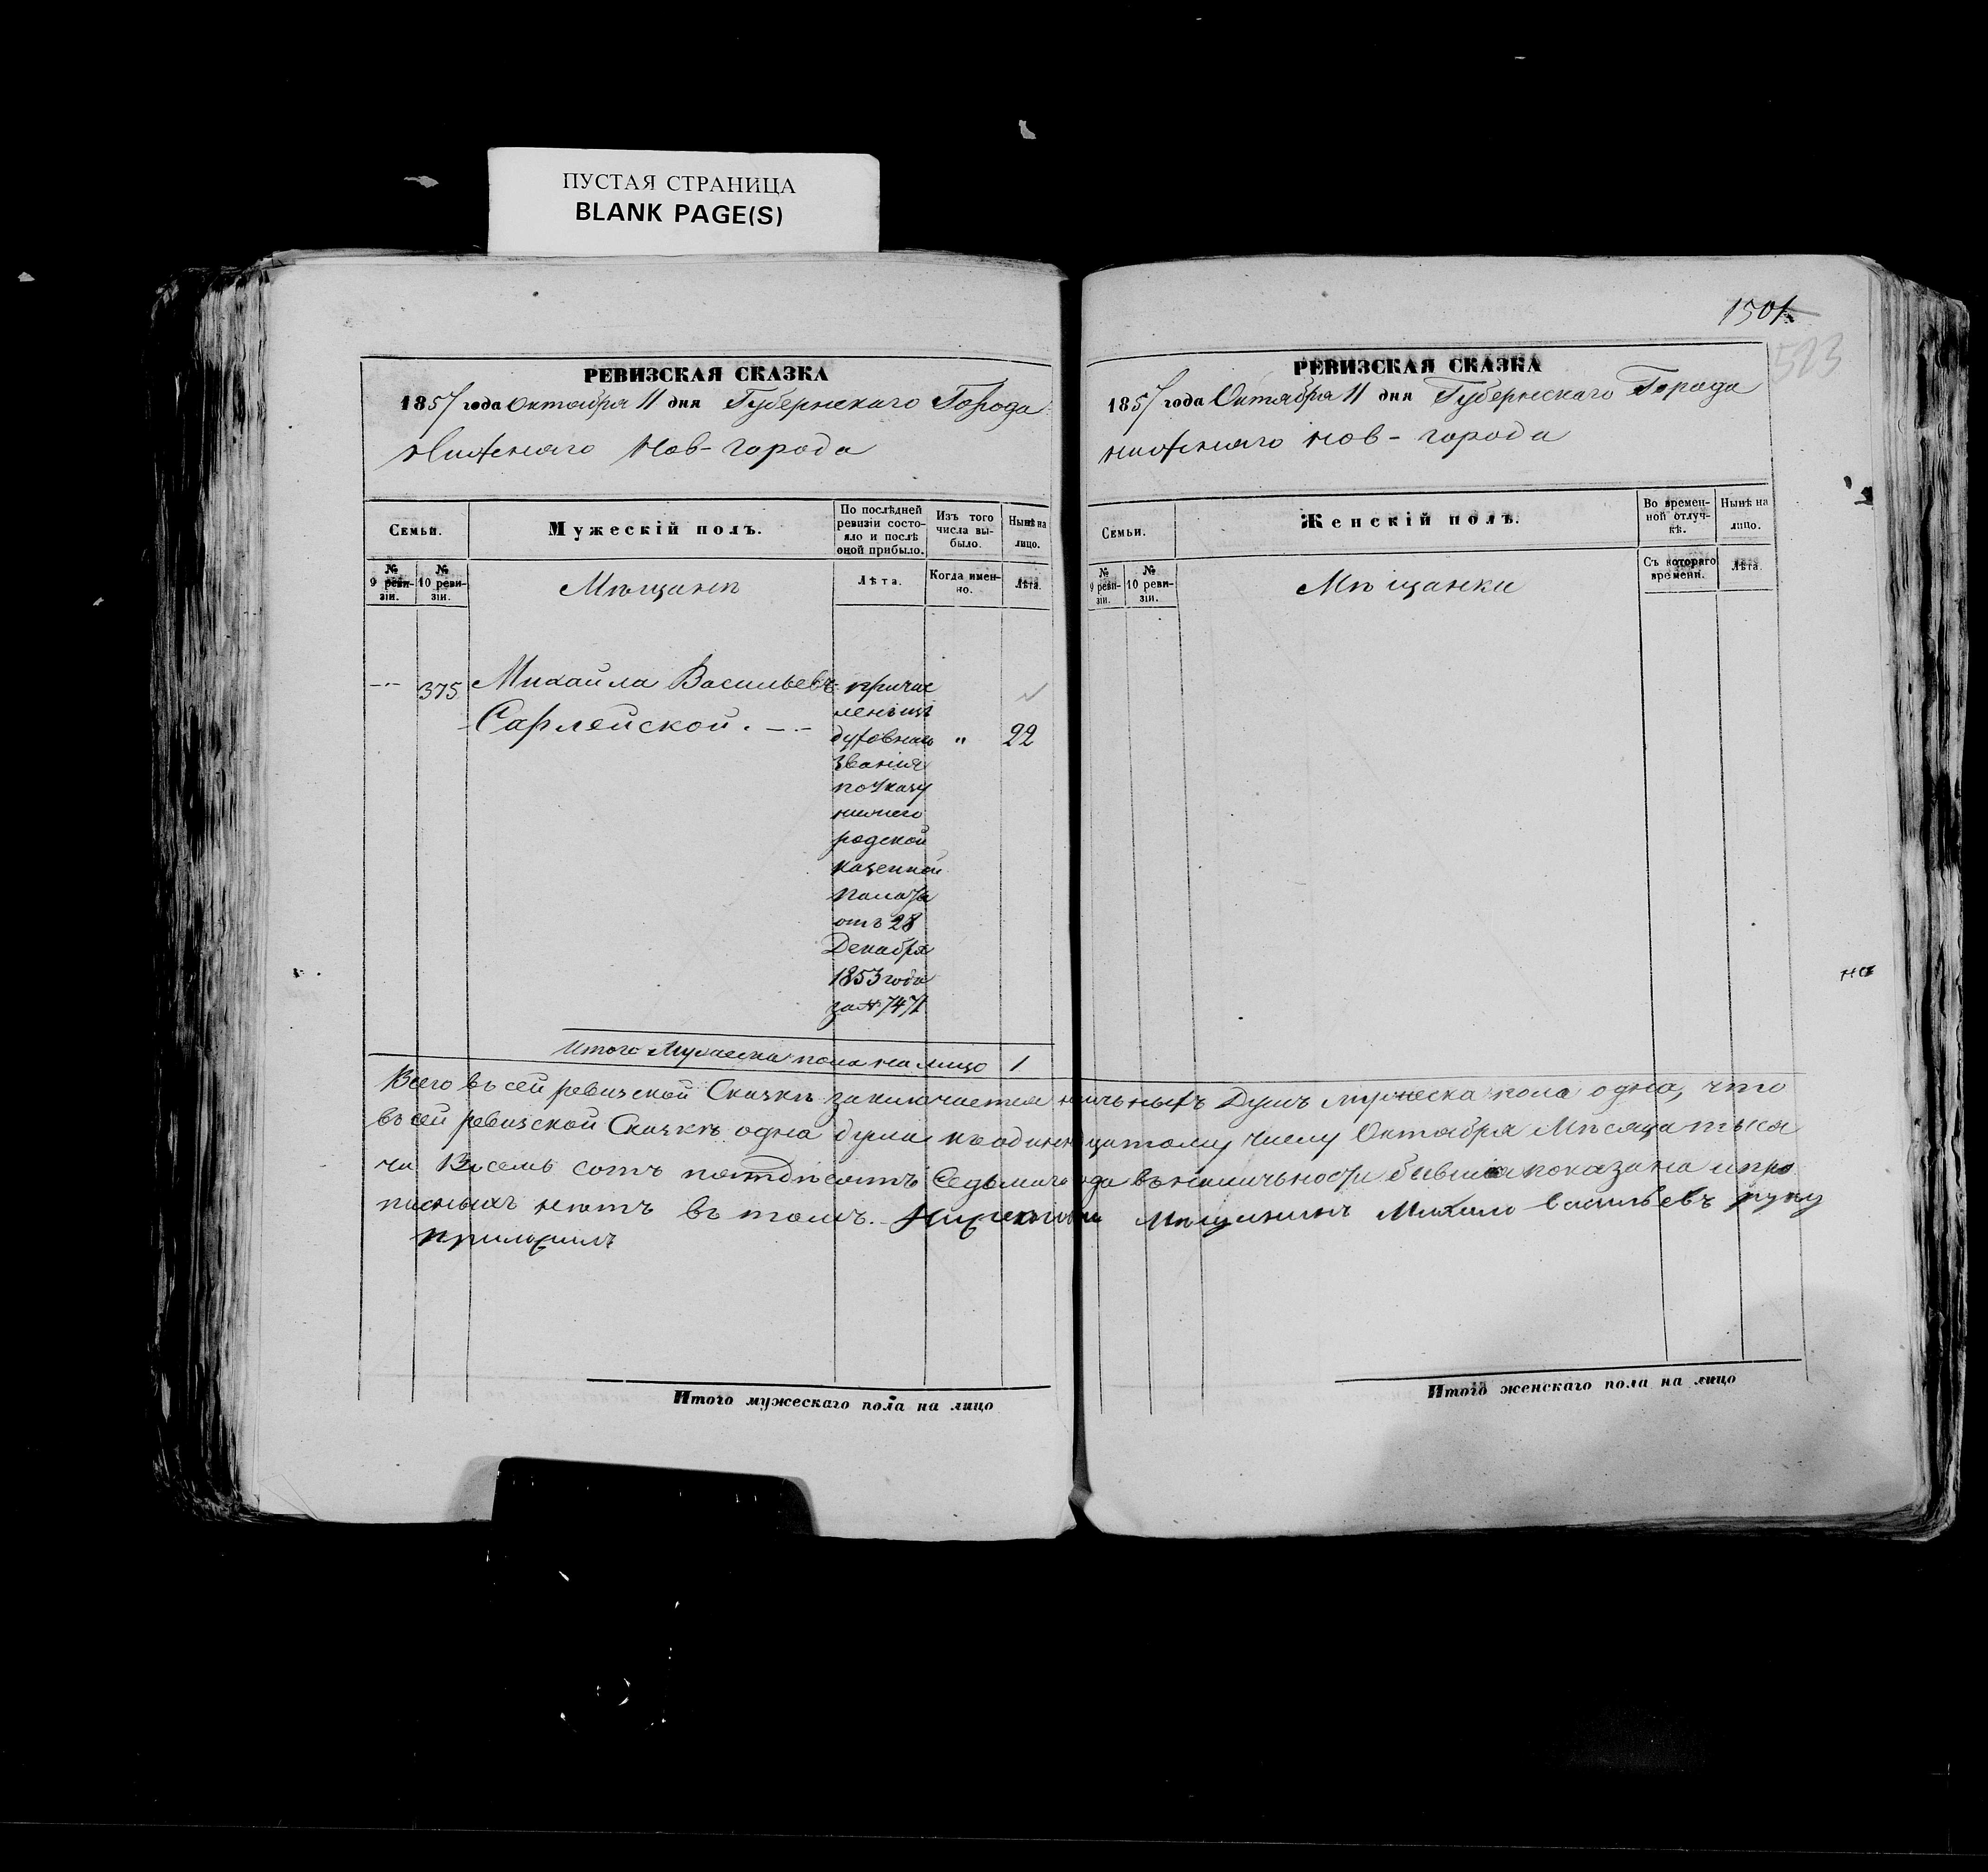 ПУСТАЯ СТРАНИЦА
BLANK PAGE(S)
РЕВИЗСКАЯ СКАЗКА
1857 года Октября 11 дня Губернскаго Города
Нижняго Нов-города
Семьи.
Мужескій полъ.
По послѣдней ревизіи состо-
яло и послѣ
оной прибыло.
Изъ того
числа вы-
было.
Нынѣ на
лицо.
№
9 реви-
зіи.
№
10 реви-
зіи.
Мѣщанъ
Лѣта.
Когда имен-
но.
Лѣта.
375
Михайла Васильевъ
Сарлейской.
причис
ленъ изъ
духовнаго
званія
по Указу
нижего
родской
казенной
палаты
отъ 28
Декабря
1853 года
за № 7471
"
22
Итого Мужеска пола на лицо 1
1501
523
РЕВИЗСКАЯ СКАЗКА
1857 года Октября 11 дня Губернскаго Города
нижняго нов-города
Семьи.
Женскій полъ.
Во времен-
ной отлуч-
кѣ.
Нынѣ на
лицо.
№
9 реви-
зіи.
№
10 реви-
зіи.
Мѣщанки
Съ котораго
времени.
Лѣта.
на
Всего въ сей ревизской Сказкѣ заключается наличныхъ Душъ мужеска пола одна, что
въ сей ревизской Сказкѣ одна душа къ одиннадцатому числу Октября Мѣсяца тыся
ча Восемь сотъ пятдѣсятъ Седьмаго года въ наличьности бывшая показана и про
писныхъ нѣтъ въ томъ. Мѣщанинъ Михаило васильевъ руку
приложилъ
Итого мужескаго пола на лицо
Итого женскаго пола на лицо